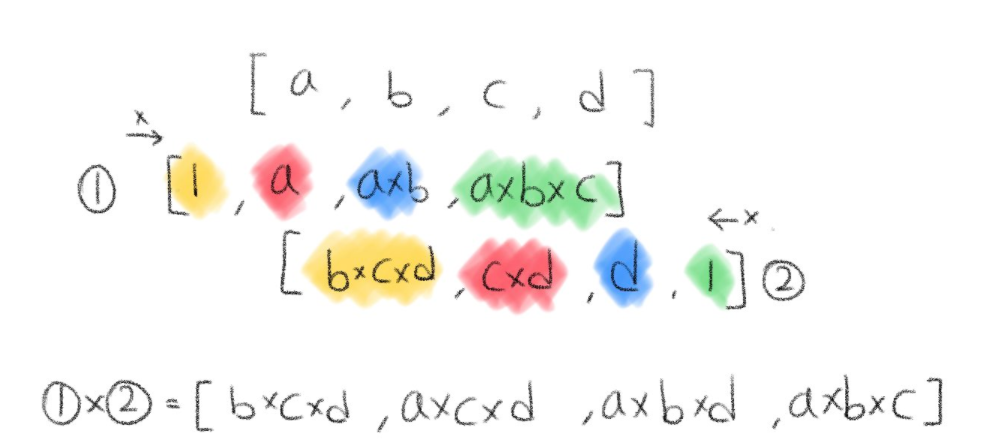 [ a , b , c , d ]
x →
① [ 1 , a , a×b , a×b×c ]
← x
[ b×c×d , c×d , d , 1 ] ②
①×② = [ b×c×d , a×c×d , a×b×d , a×b×c ]